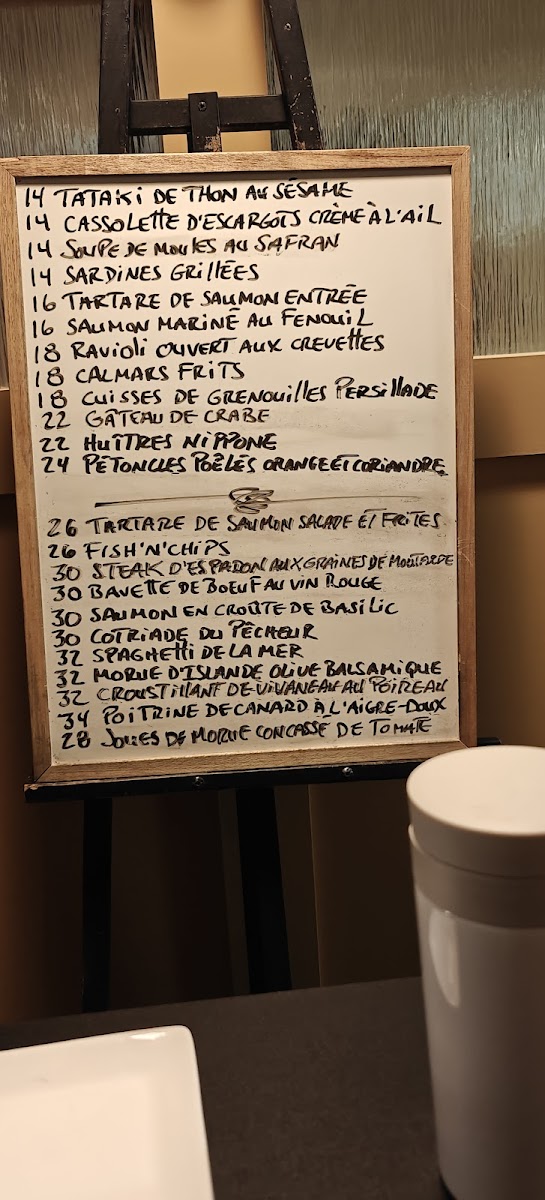 14 TATAKI DE THON AU SÉSAME
14 CASSOLETTE D'ESCARGOTS CRÈME À L'AIL
14 SOUPE DE MOULES AU SAFRAN
14 SARDINES GRILLÉES
16 TARTARE DE SAUMON ENTRÉE
16 SAUMON MARINÉ AU FENOUIL
18 RAVIOLI OUVERT AUX CREVETTES
18 CALMARS FRITS
18 CUISSES DE GRENOUILLES PERSILLADE
22 GÂTEAU DE CRABE
22 HUÎTRES NIPPONE
24 PÉTONCLES POÊLÉS ORANGE ET CORIANDRE
26 TARTARE DE SAUMON SALADE ET FRITES
26 FISH'N'CHIPS
30 STEAK D'ESPADON AUX GRAINES DE MOUTARDE
30 BAVETTE DE BOEUF AU VIN ROUGE
30 SAUMON EN CROÛTE DE BASILIC
30 COTRIADE DU PÊCHEUR
32 SPAGHETTI DE LA MER
32 MORUE D'ISLANDE OLIVE BALSAMIQUE
32 CROUSTILLANT DE VIVANEAU AU POIREAU
34 POITRINE DE CANARD À L'AIGRE-DOUX
28 JOUES DE MORUE CONCASSÉ DE TOMATE